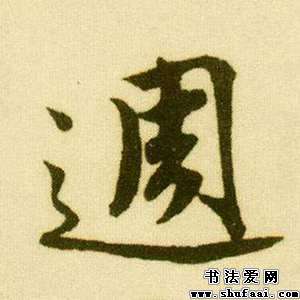 週
书法爱网
www.shufaai.com